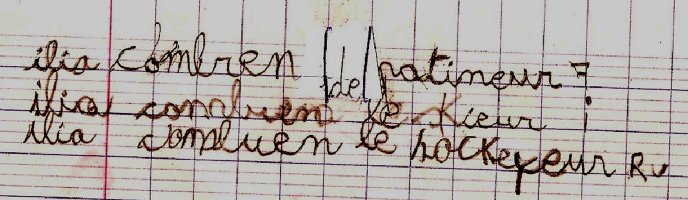 ilia combren de patineur ?
ilia conbuen le kieur
ilia conbluen le hockeyeur